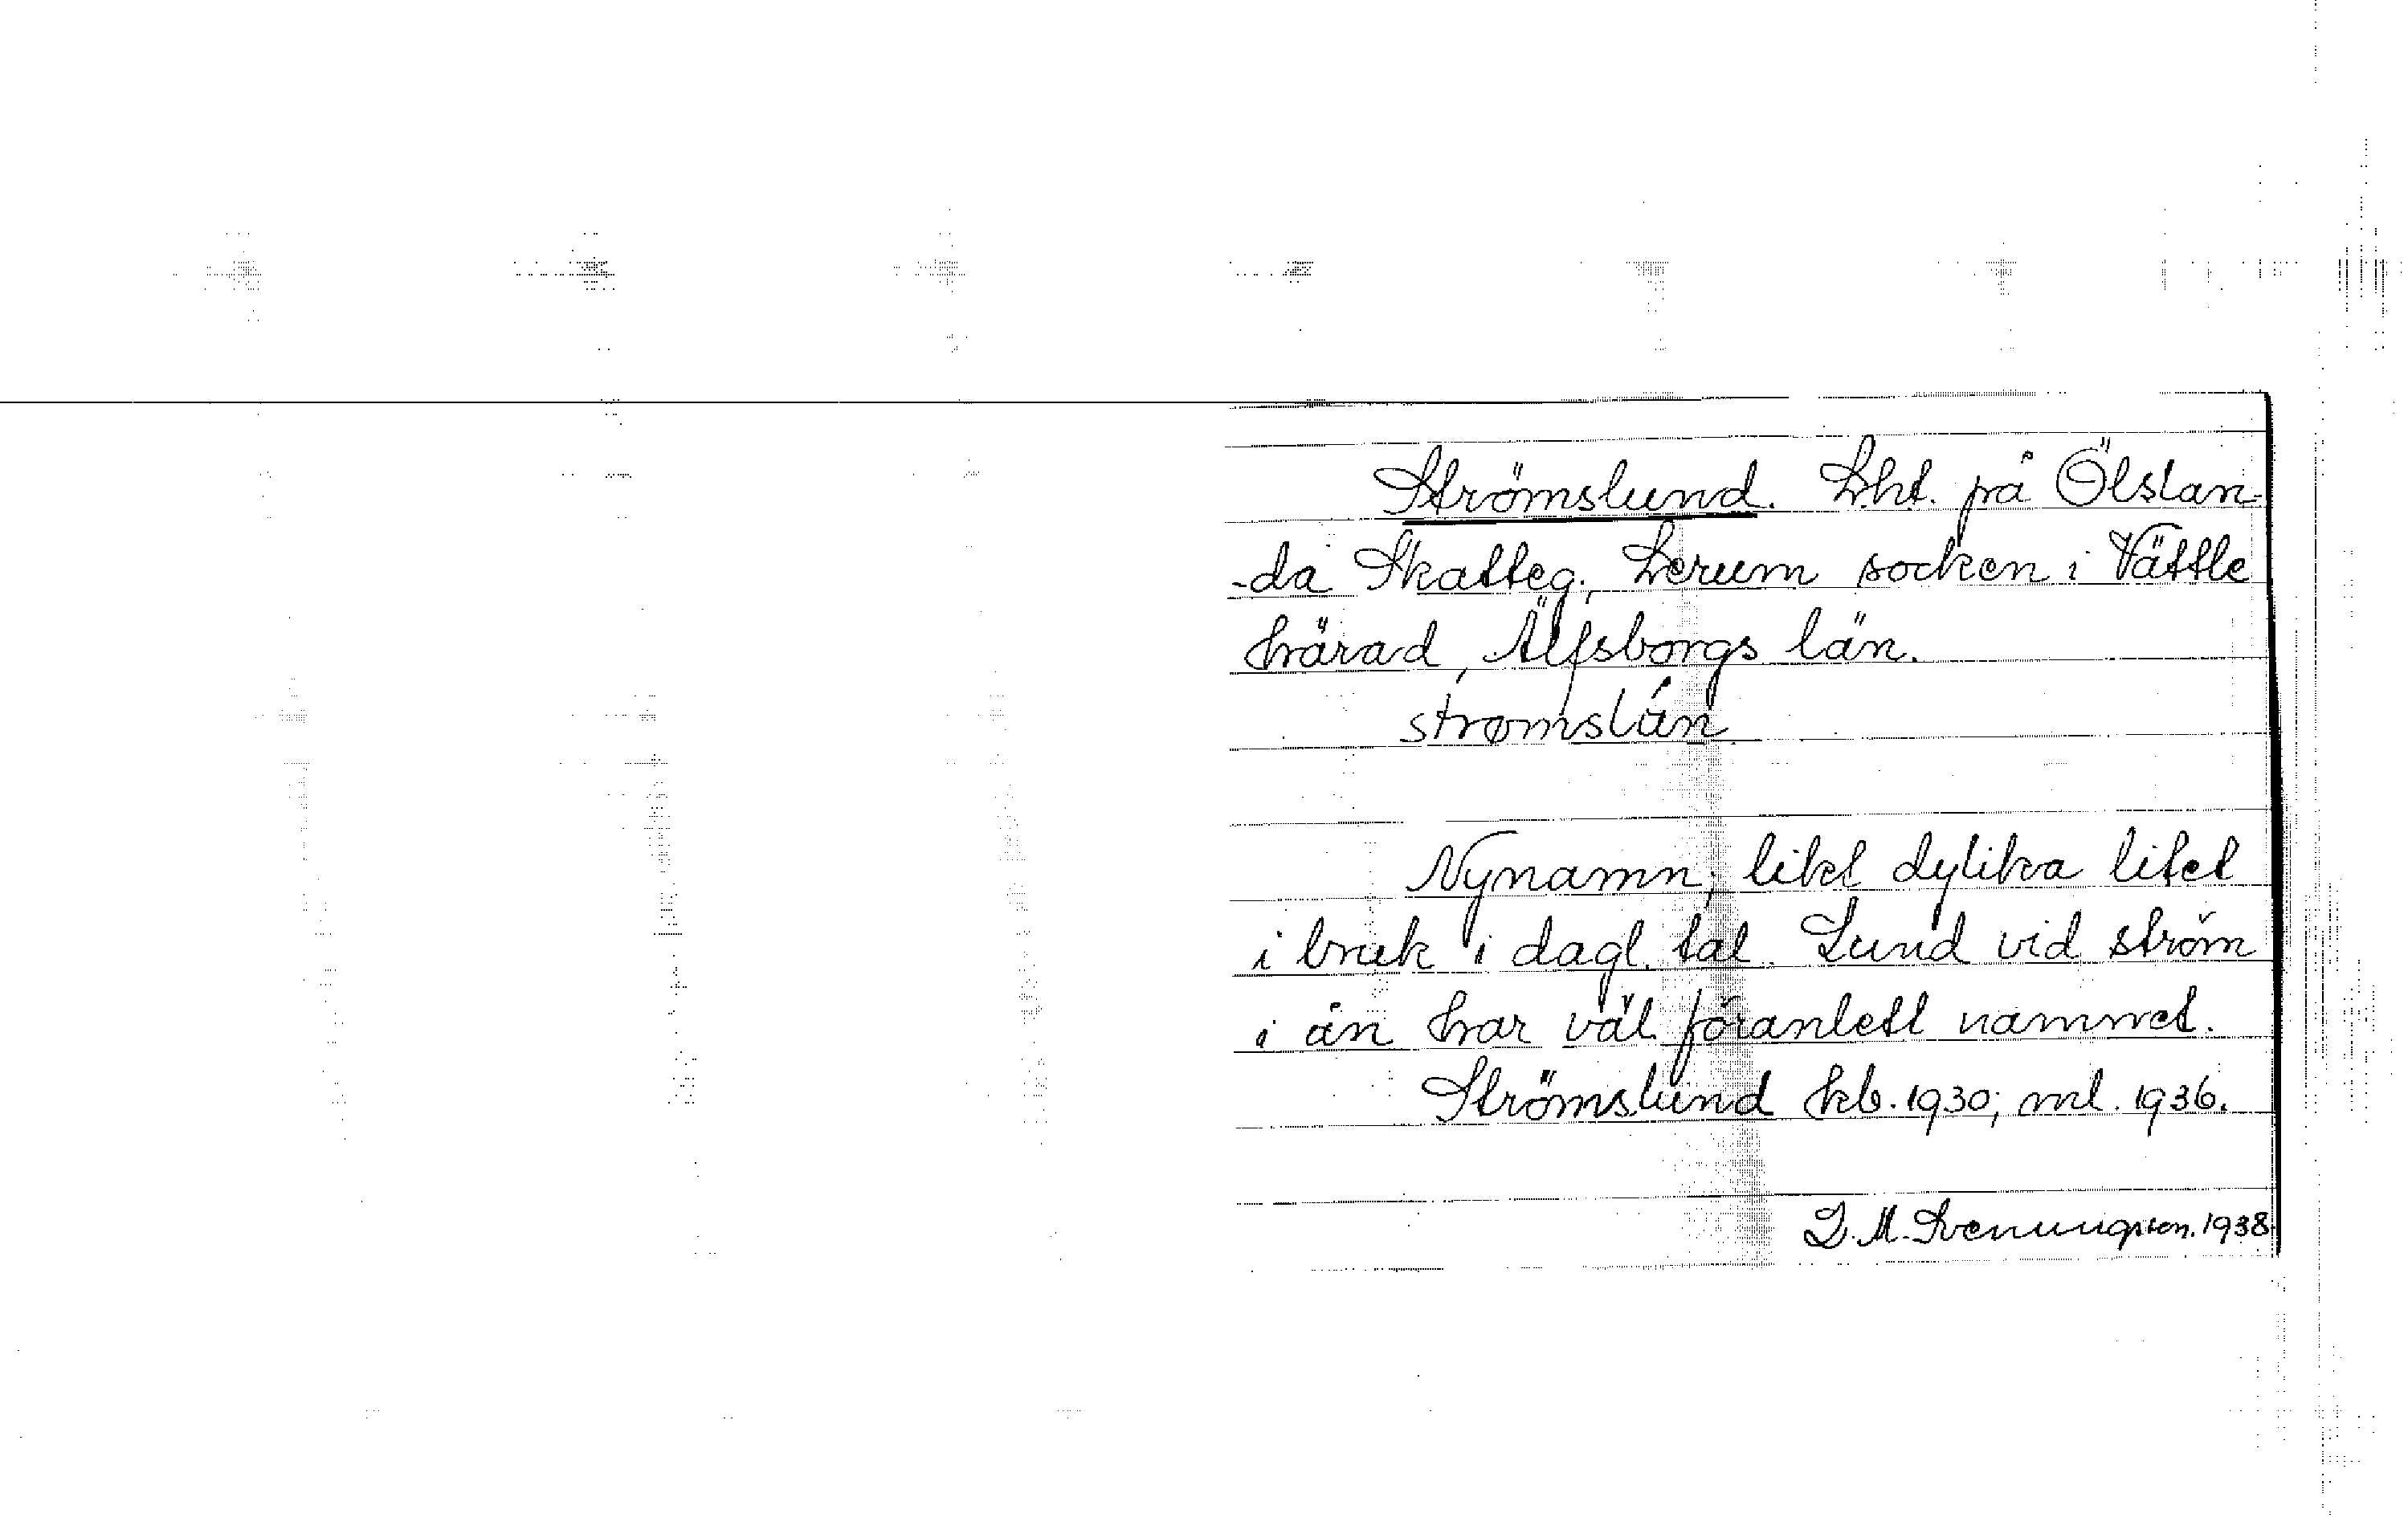 Strömslund. Lht. på Ölslan-
-da Skatteg., Lerum socken i Vättle
härad, Älfsborgs län.
strømslún
Nynamn; likt dylika litet
i bruk i dagl. tal. Lund vid ström
i ån har väl föranlett namnet.
Strömslund kb. 1930; ml. 1936.
D. M. Svenungsson. 1938